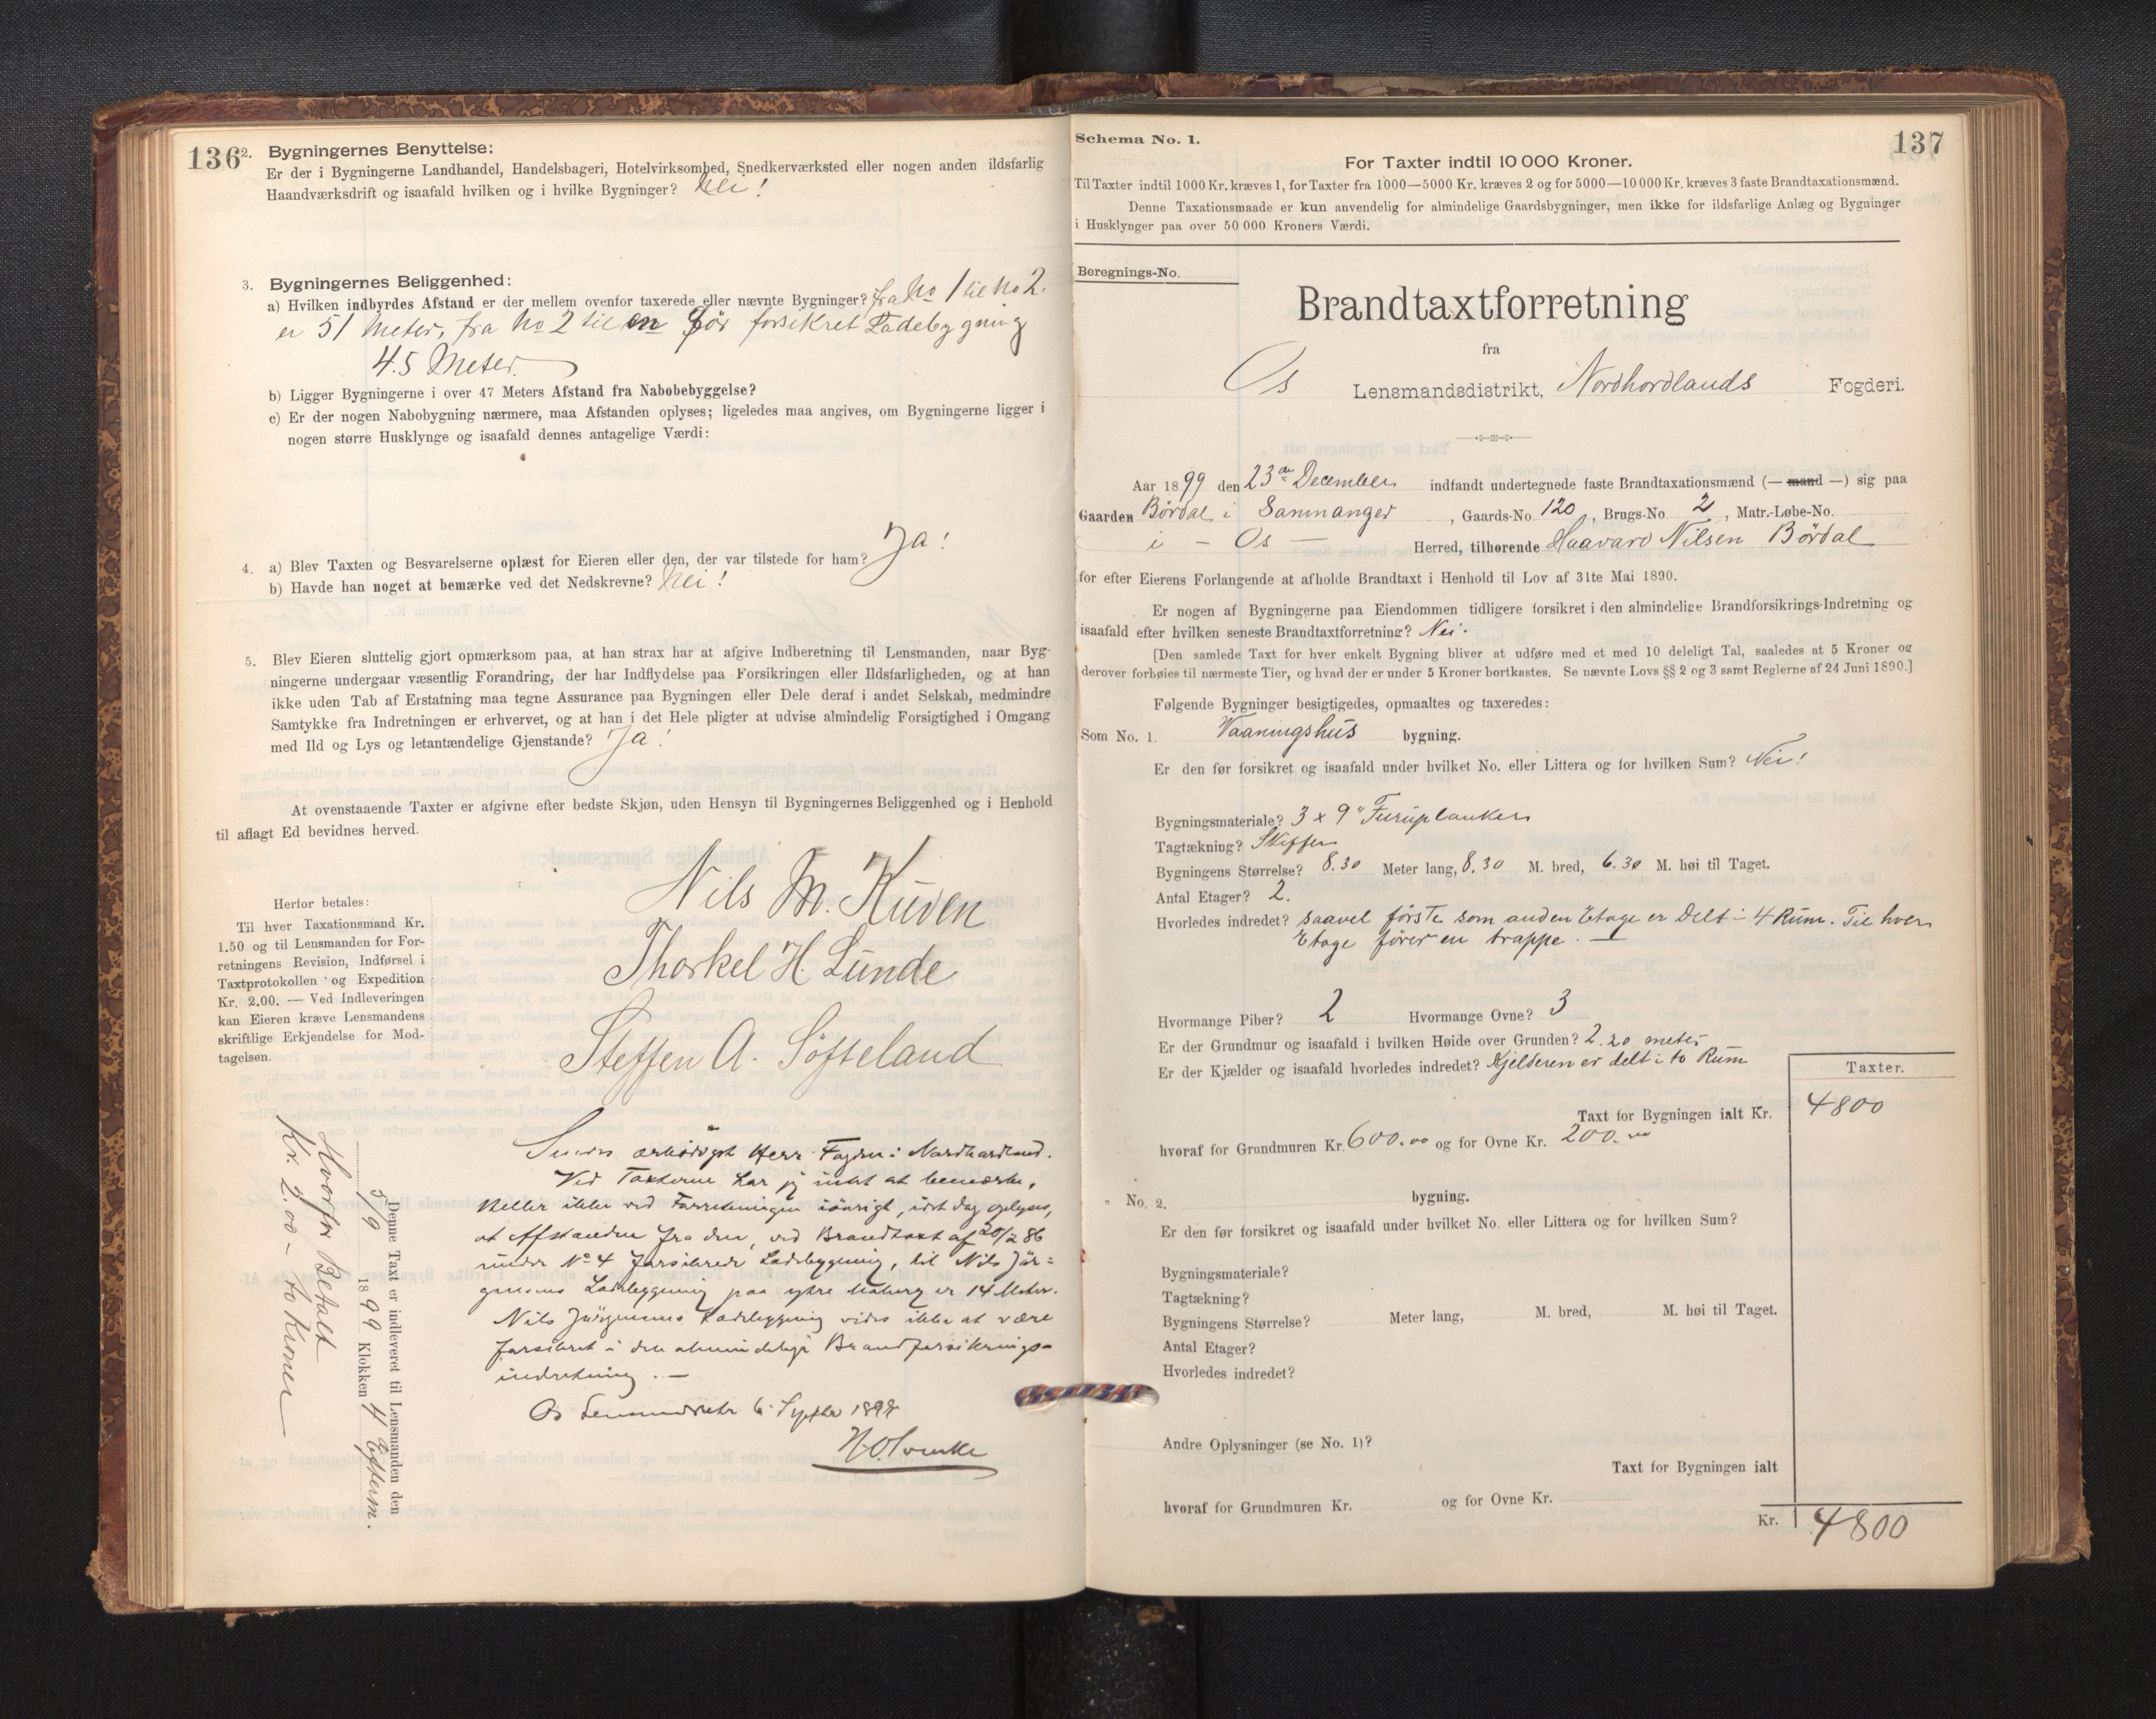 136
2. Bygningernes Benyttelse:
Er der i Bygningerne Landhandel, Handelsbageri, Hotelvirksomhed, Snedkerværksted eller nogen anden ildsfarlig
Haandværksdrift og isaafald hvilken og i hvilke Bygninger? Nei!
3. Bygningernes Beliggenhed:
a) Hvilken indbyrdes Afstand er der mellem ovenfor taxerede eller nævnte Bygninger? fra No 1 til No 2.
er 51 Meter, fra No 2 til en før forsikret Ladebygning
4.5 Meter.
b) Ligger Bygningerne i over 47 Meters Afstand fra Nabobebyggelse?
c) Er der nogen Nabobygning nærmere, maa Afstanden oplyses; ligeledes maa angives, om Bygningerne ligger i
nogen større Husklynge og isaafald dennes antagelige Værdi:
4. a) Blev Taxten og Besvarelserne oplæst for Eieren eller den, der var tilstede for ham? Ja!
b) Havde han noget at bemærke ved det Nedskrevne? Nei!
5. Blev Eieren sluttelig gjort opmærksom paa, at han strax har at afgive Indberetning til Lensmanden, naar Byg-
ningerne undergaar væsentlig Forandring, der har Indflydelse paa Forsikringen eller Ildsfarligheden, og at han
ikke uden Tab af Erstatning maa tegne Assurance paa Bygningen eller Dele deraf i andet Selskab, medmindre
Samtykke fra Indretningen er erhvervet, og at han i det Hele pligter at udvise almindelig Forsigtighed i Omgang
med Ild og Lys og letantændelige Gjenstande? Ja!
At ovenstaaende Taxter er afgivne efter bedste Skjøn, uden Hensyn til Bygningernes Beliggenhed og i Henhold
til aflagt Ed bevidnes herved.
Nils M. Kuven
Thorkel H. Lunde
Steffen A. Söfteland
Herfor betales:
Til hver Taxationsmand Kr.
1.50 og til Lensmanden for For-
retningens Revision, Indførsel i
Taxtprotokollen og Expedition
Kr. 2.00. — Ved Indleveringen
kan Eieren kræve Lensmandens
skriftlige Erkjendelse for Mod-
tagelsen.
Sendes ærbødigst Herr Fogden i Nordhordland.
Ved Taxterne har jeg intet at bemærke,
heller ikke ved Forretningen iøvrigt, idet dog oplyses,
at Afstanden fra den, ved Brandtaxt af 20/2 86
under No 4 forsikrede Ladebygning, til Nils Jör-
gensens Ladebygning paa ytre er 14 Meter.
Nils Jörgensens Ladebygning vides ikke at være
forsikret i den almindelige Brandforsikrings-
indretning. —
Os Lensmandsktr 6 Septbr 1899
Denne Taxt er indleveret til Lensmanden den
5/9 1899 Klokken 4 Efterm.
Hvorfor Betalt
Kr. 2.00 - to Kroner
137
Schema No. 1.
For Taxter indtil 10 000 Kroner.
Til Taxter indtil 1000 Kr. kræves 1, for Taxter fra 1000—5000 Kr. kræves 2 og for 5000—10 000 Kr. kræves 3 faste Brandtaxationsmænd.
Denne Taxationsmaade er kun anvendelig for almindelige Gaardsbygninger, men ikke for ildsfarlige Anlæg og Bygninger
i Husklynger paa over 50 000 Kroners Værdi.
Beregnings-No.
Brandtaxtforretning
fra
Os Lensmandsdistrikt, Nordhordlands Fogderi.
Aar 1899 den 23de December indfandt undertegnede faste Brandtaxationsmænd (— mand —) sig paa
Gaarden Bördal i Sammanger, Gaards-No. 120, Brugs-No. 2, Matr.-Løbe-No.
i - Os - Herred, tilhørende Haavard Nilsen Bördal
for efter Eierens Forlangende at afholde Brandtaxt i Henhold til Lov af 31te Mai 1890.
Er nogen af Bygningerne paa Eiendommen tidligere forsikret i den almindelige Brandforsikrings-Indretning og
isaafald efter hvilken seneste Brandtaxtforretning? Nei.
[Den samlede Taxt for hver enkelt Bygning bliver at udføre med et med 10 deleligt Tal, saaledes at 5 Kroner og
derover forhøies til nærmeste Tier, og hvad der er under 5 Kroner bortkastes. Se nævnte Lovs §§ 2 og 3 samt Reglerne af 24 Juni 1890.]
Følgende Bygninger besigtigedes, opmaaltes og taxeredes:
Som No. 1. Vaaningshus bygning.
Er den før forsikret og isaafald under hvilket No. eller Littera og for hvilken Sum? Nei!
Bygningsmateriale? 3 x 9" Furuplanker
Tagtækning? Skiffer
Bygningens Størrelse? 8.30 Meter lang, 8.30 M. bred, 6.30 M. høi til Taget.
Antal Etager? 2.
Hvorledes indredet? saavel förste som anden Etage er Delt i 4 Rum. Til hver
Etage fører en trappe. —
Hvormange Piber? 2 Hvormange Ovne? 3
Er der Grundmur og isaafald i hvilken Høide over Grunden? 2.20 meter
Er der Kjælder og isaafald hvorledes indredet? Kjelderen er delt i to Rum
Taxter.
Taxt for Bygningen ialt Kr. 4800
hvoraf for Grundmuren Kr. 600.00 og for Ovne Kr. 200.00
" No. 2. bygning.
Er den før forsikret og isaafald under hvilket No. eller Littera og for hvilken Sum?
Bygningsmateriale?
Tagtækning?
Bygningens Størrelse? Meter lang, M. bred, M. høi til Taget.
Antal Etager?
Hvorledes indredet?
Andre Oplysninger (se No. 1)?
Taxt for Bygningen ialt
hvoraf for Grundmuren Kr. og for Ovne Kr.
Kr. 4800